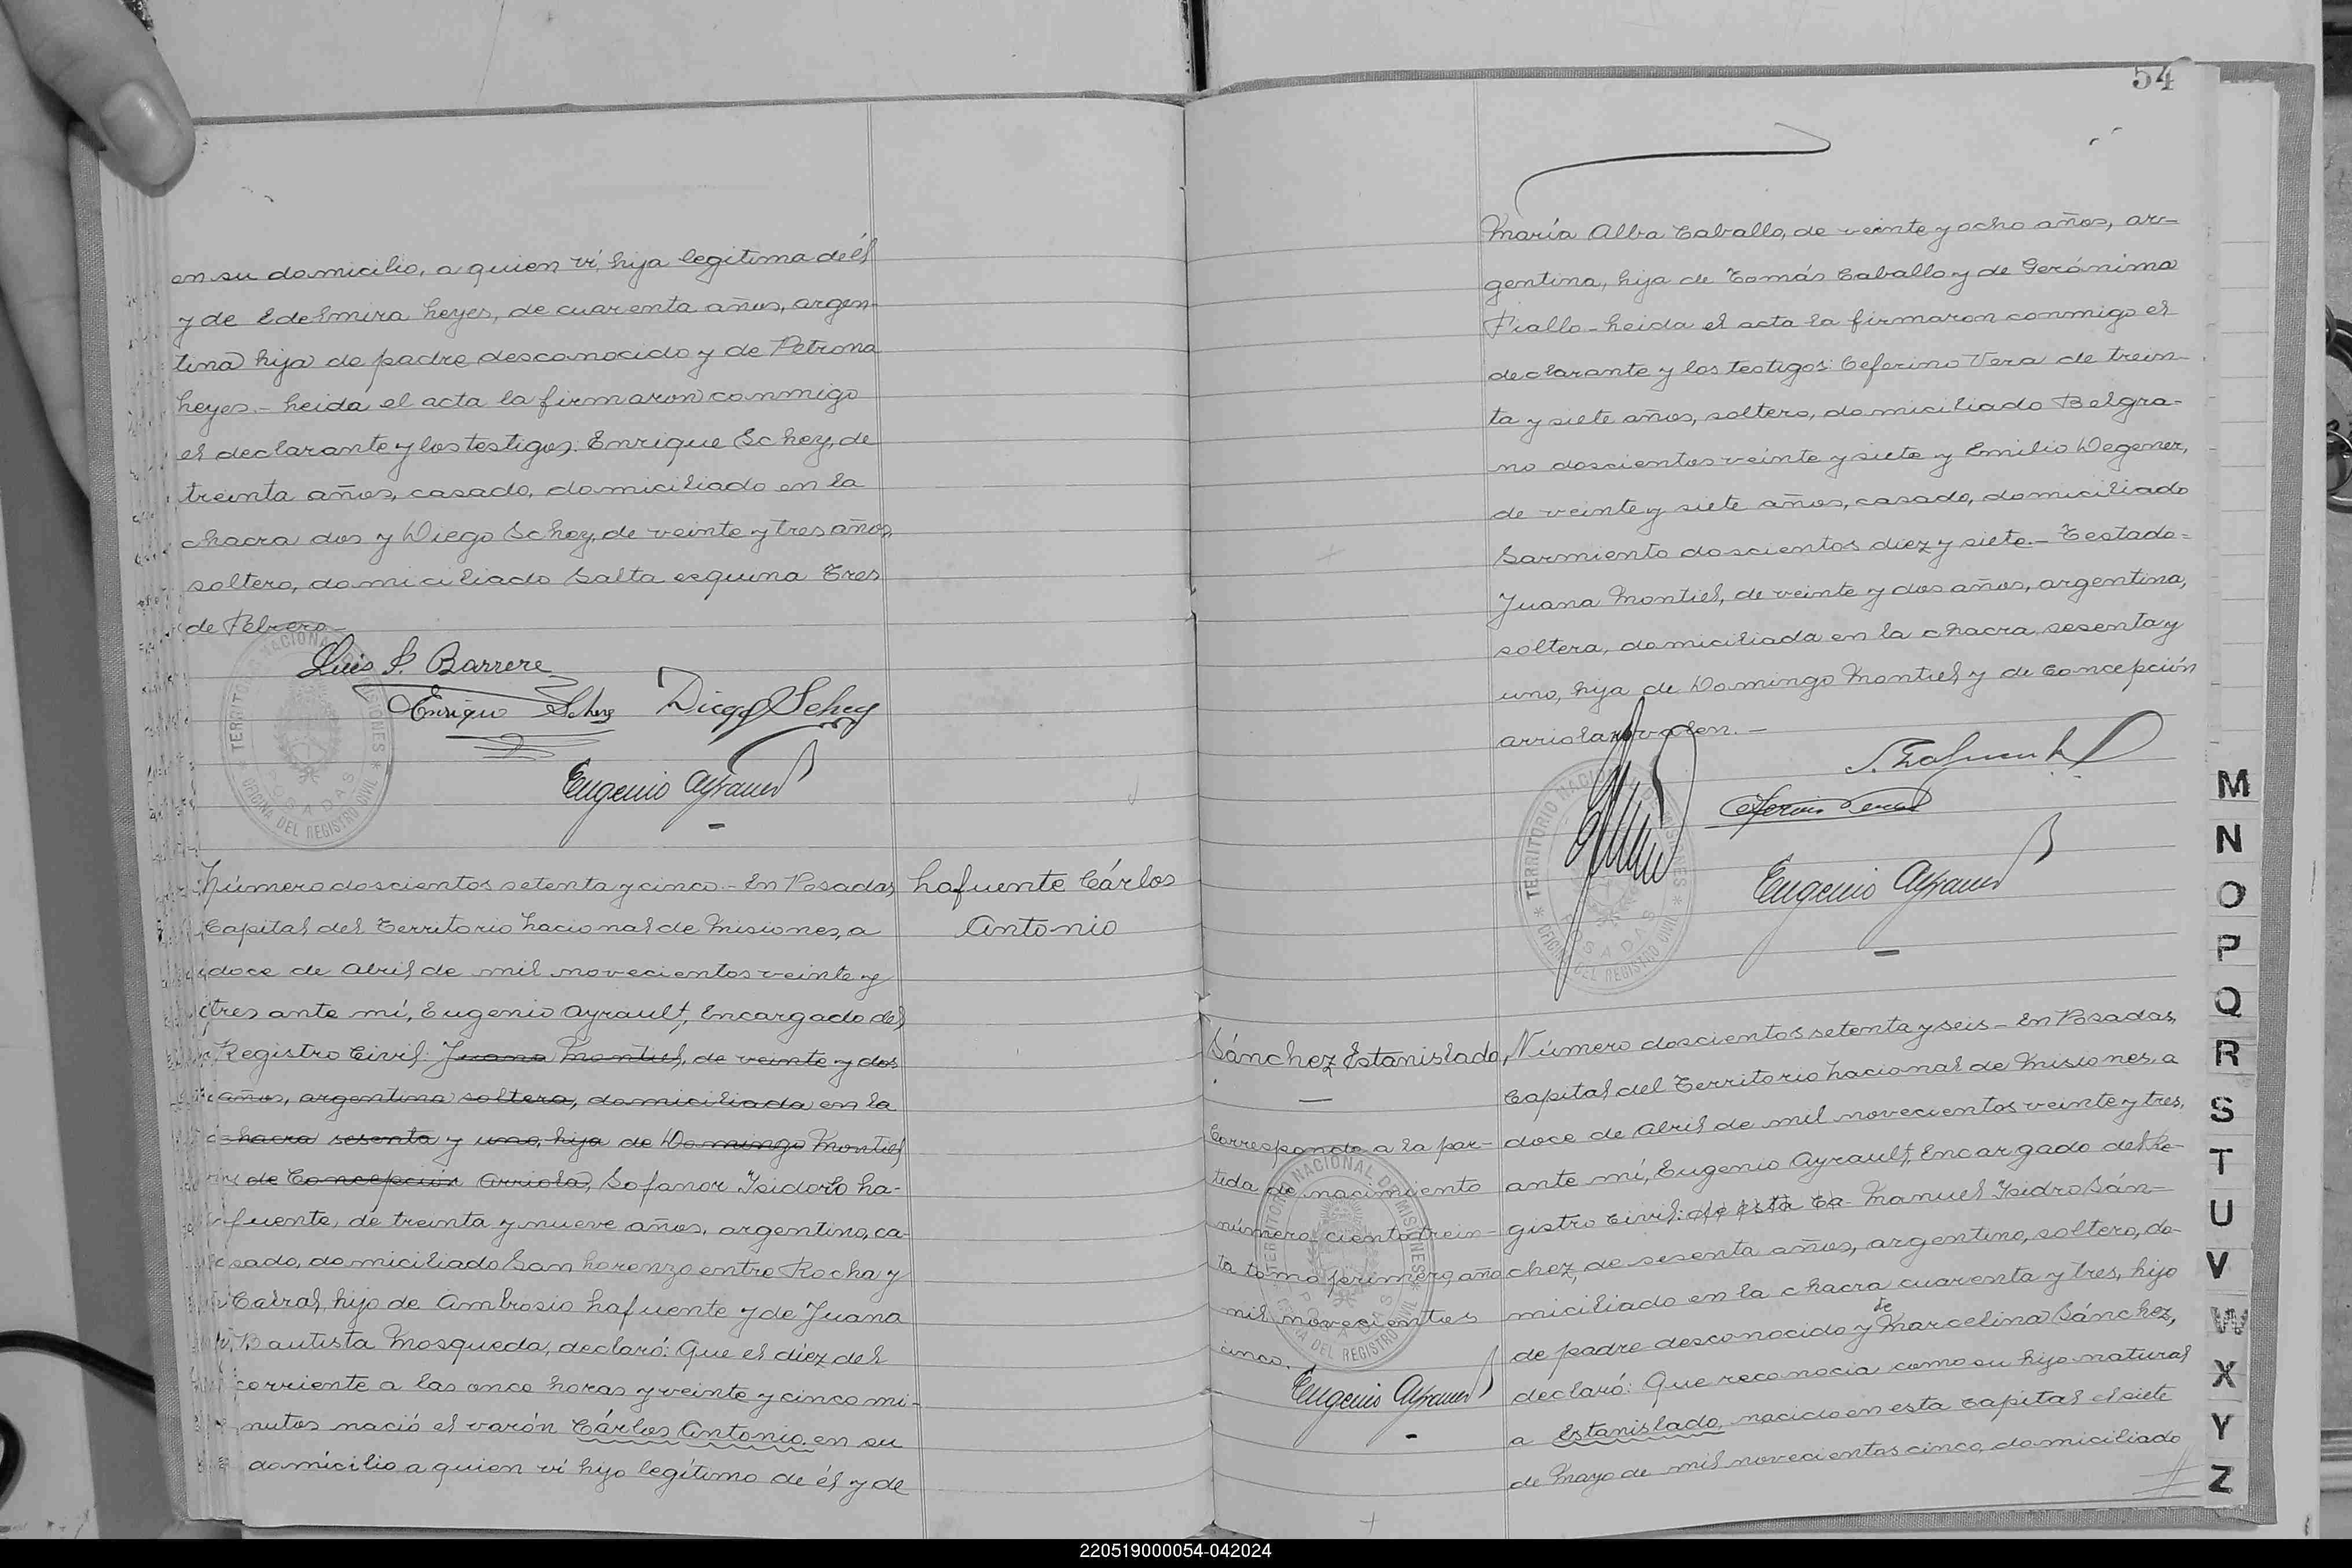 en su domicilio, a quien ví, hija legítima de él
y de Edelmira Leyes, de cuarenta años, argen-
tina hija de padre desconocido y de Petrona
Leyes.- Leida el acta la firmaron conmigo
el declarante y los testigos: Enrique Schey, de
treinta años, casado, domiciliado en la
chacra dos y Diego Schey, de veinte y tres años,
soltero, domiciliado Salta esquina Tres
de Febrero
Luis P. Barrere
Enrique Schey Diego Schey
Eugenio Ayrault
TERRITORIO NACIONAL DE MISIONES
POSADAS
OFICINA DEL REGISTRO CIVIL
Número doscientos setenta y cinco.- En Posadas
Capital del Territorio Nacional de Misiones, a
doce de Abril de mil novecientos veinte y
tres ante mí, Eugenio Ayrault, Encargado del
Registro Civil: Juana Montiel, de veinte y dos
años, argentina soltera, domiciliada en la
chacra sesenta y uno, hija de Domingo Montiel
y de Concepción Arriola, Sofanor Isidoro La-
fuente, de treinta y nueve años, argentino, ca-
sado, domiciliado San Lorenzo entre Rocha y
Cabral, hijo de Ambrosio Lafuente y de Juana
Bautista Mosqueda, declaró: Que el diez del
corriente a las once horas y veinte y cinco mi-
nutos nació el varón Cárlos Antonio en su
domicilio a quien ví hijo legítimo de él y de
Lafuente Cárlos
Antonio
54
María Alba Caballo, de veinte y ocho años, ar-
gentina, hija de Tomás Caballo y de Gerónima
Fiallo - Leida el acta la firmaron conmigo el
declarante y los testigos: Ceferino Vera de trein-
ta y siete años, soltero, domiciliado Belgra-
no doscientos veinte y siete y Emilio Wegener,
de veinte y siete años, casado, domiciliado
Sarmiento doscientos diez y siete.- Testado=
Juana Montiel, de veinte y dos años, argentina,
soltera, domiciliada en la chacra sesenta y
uno, hija de Domingo Montiel y de Concepción
arriola no valen.-
S. Lafuente
Ceferino Vera
Eugenio Ayrault
TERRITORIO NACIONAL DE MISIONES
POSADAS
OFICINA DEL REGISTRO CIVIL
Sánchez Estanislado,
Corresponde a la par-
tida de nacimiento
número ciento trein-
ta tomo primero, año
mil novecientos
cinco.
Eugenio Ayrault
TERRITORIO NACIONAL DE MISIONES
POSADAS
OFICINA DEL REGISTRO CIVIL
Número doscientos setenta y seis - En Posadas,
Capital del Territorio Nacional de Misiones, a
doce de Abril de mil novecientos veinte y tres,
ante mí, Eugenio Ayrault, Encargado del Re-
gistro Civil: de esta Ca Manuel Isidro Sán-
chez, de sesenta años, argentino, soltero, do-
miciliado en la chacra cuarenta y tres, hijo
de padre desconocido y de Marcelina Sánchez,
declaró: Que reconocía como su hijo natural
a Estanislado, nacido en esta Capital el siete
de Mayo de mil novecientos cinco, domiciliado
M
N
O
P
Q
R
S
T
U
V
W
X
Y
Z
220519000054-042024